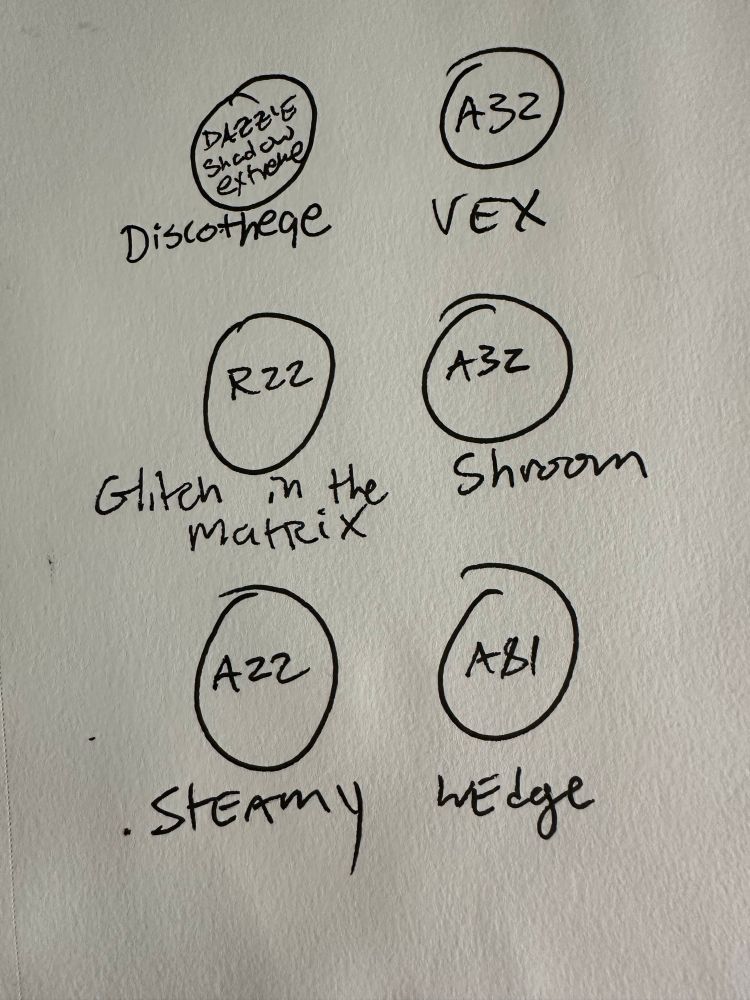 DAZZLE
Shadow
extreme
Discotheqe
A32
VEX
R22
Glitch in the
MatRiX
A32
Shroom
A22
STEAmy
A81
WEdge